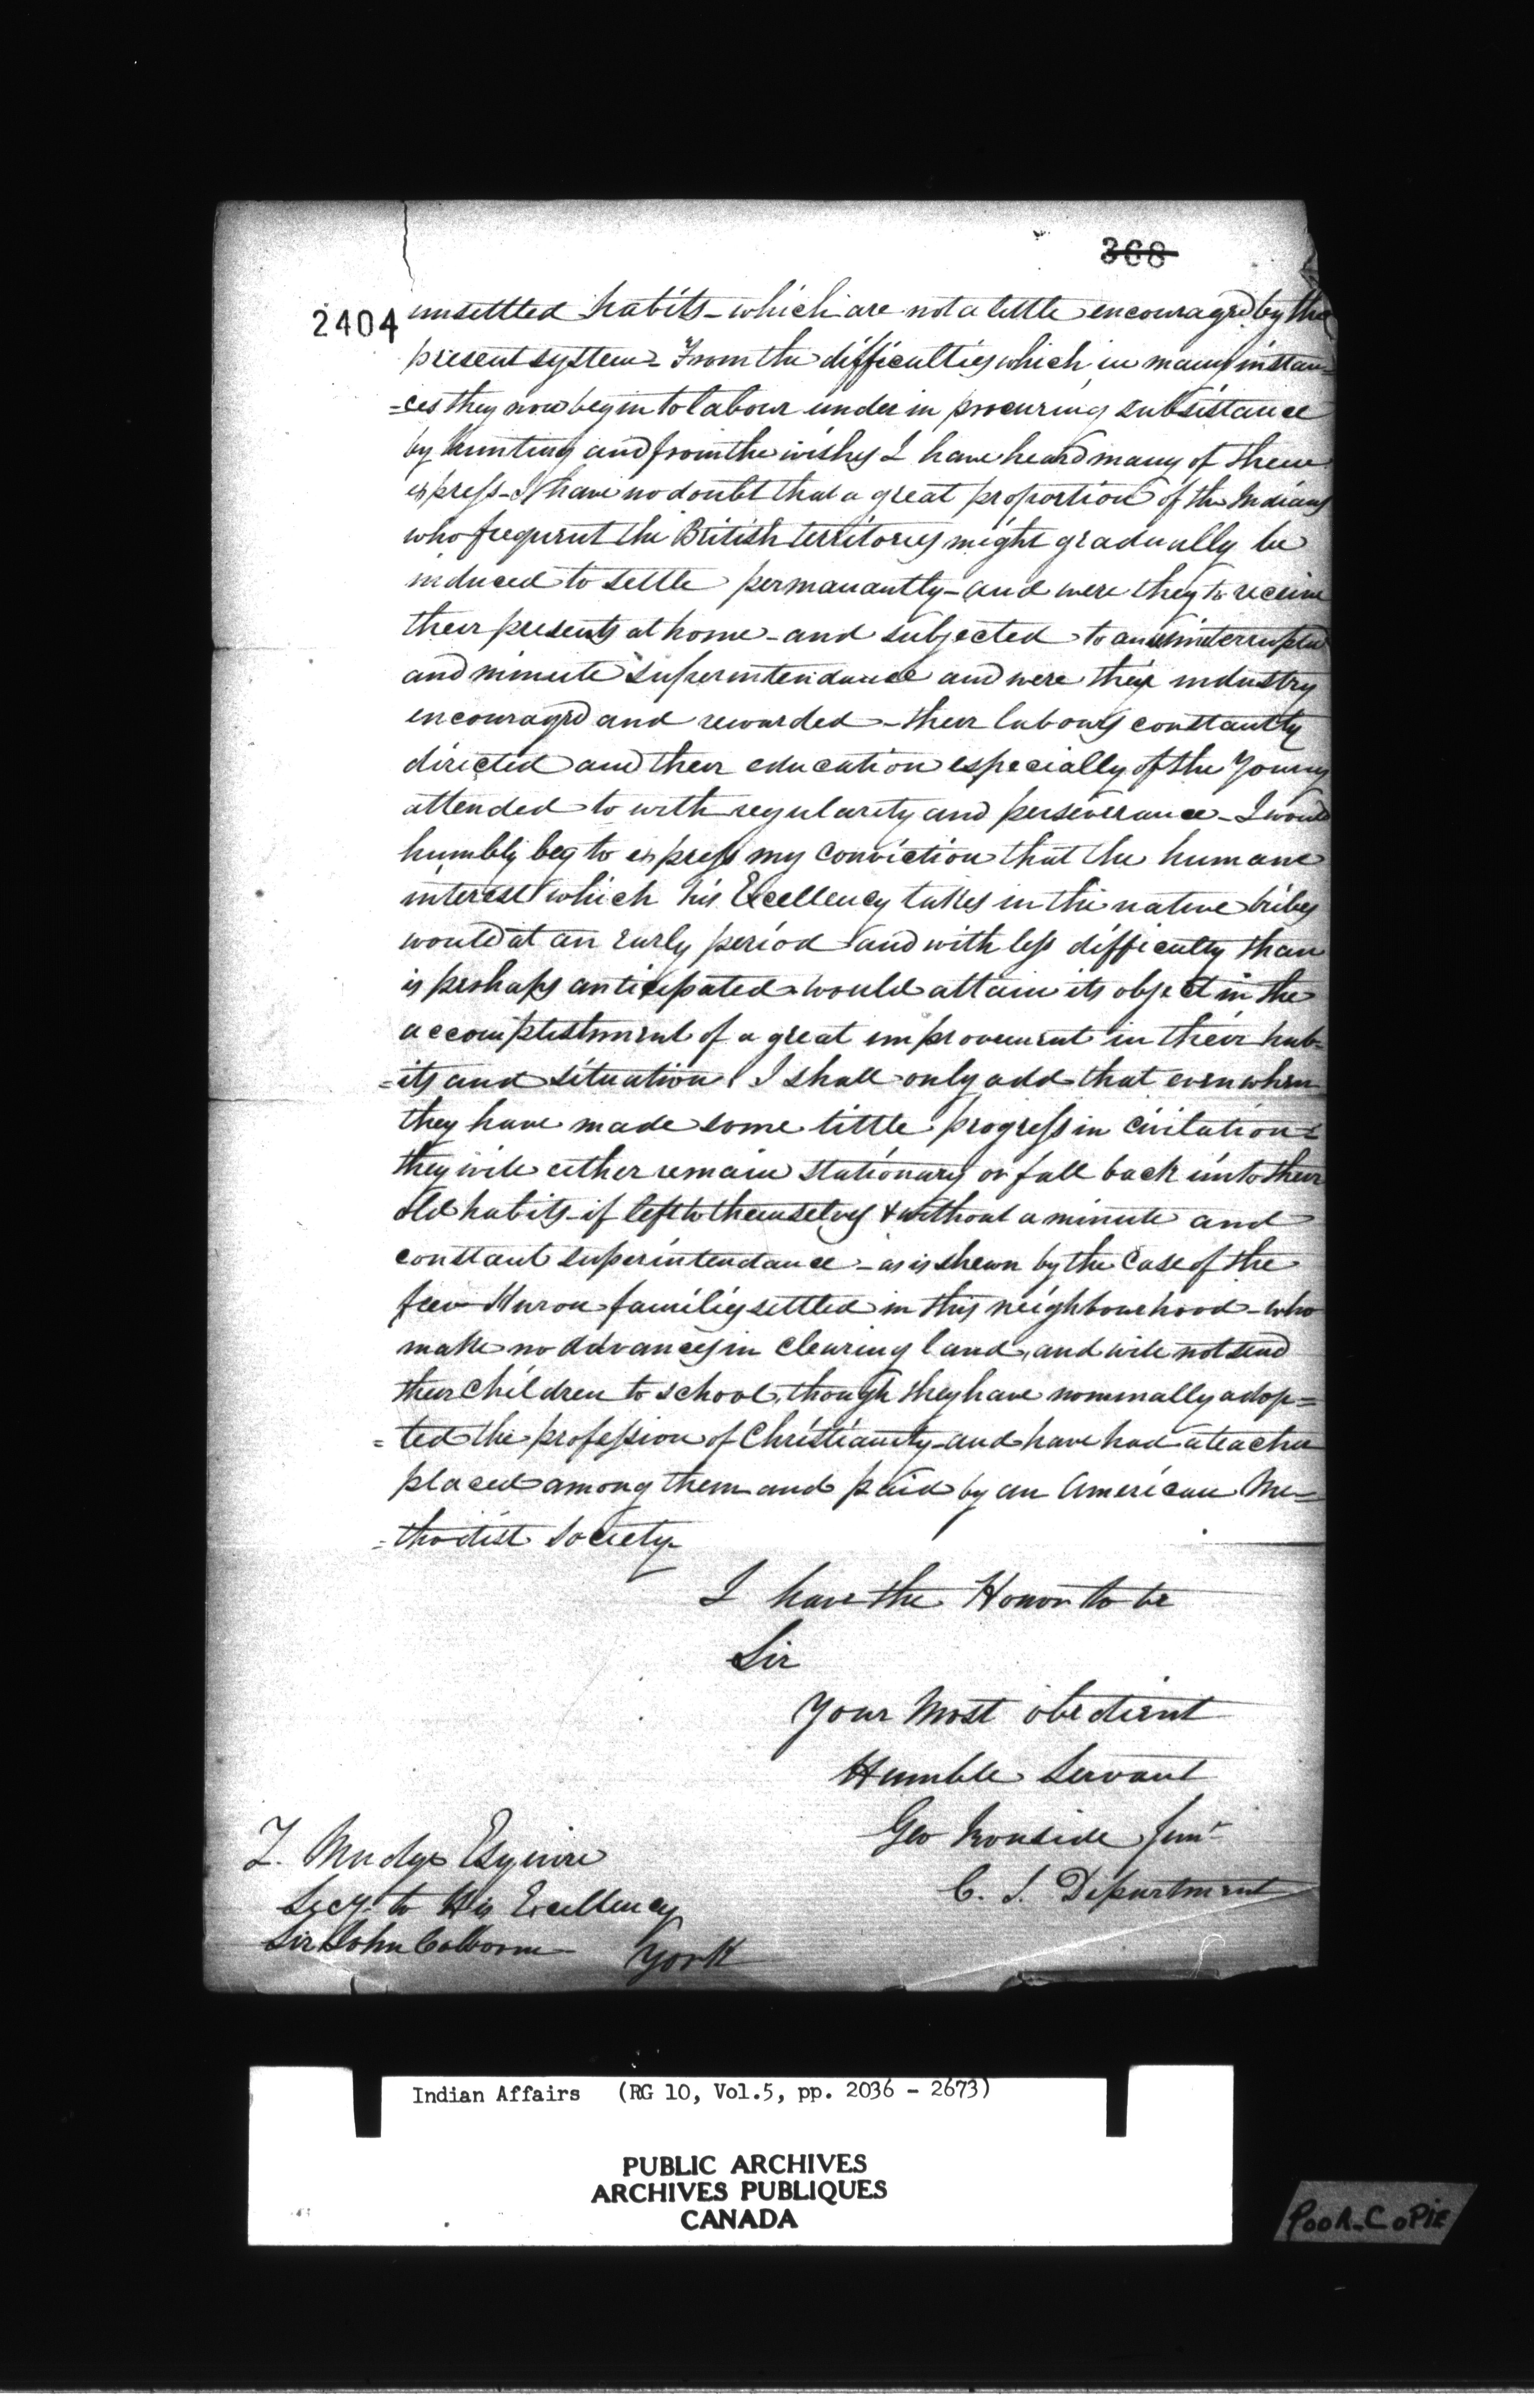 368
2404
unsettled habits - which are not a little encouraged by the
present system - From the difficulties which in many instan=
=ces they now begin to labour under in procuring subsistance
by hunting and from the wishes I have heard many of them
express - I have no doubt that a great proportion of the Indians
who frequent the British territories might gradually be
induced to settle permanantly - and were they to receive
their presents at home - and subjected to an uninterrupted
and minute superintendance and were their industry
encouraged and rewarded - their labours constantly
directed and their education especially of the Young
attended to with regularity and perseverance - I would
humbly beg to express my conviction that the humane
interest which his Excellency takes in the native tribes
would at an early period and with less difficulty than
is perhaps anticipated would attain its object in the
accomplishment of a great improvement in their hab=
=its and situation. I shall only add that even when
they have made some little progress in civilation -
they will either remain stationary or fall back into their
old habits - if left to themselves & without a minute and
constant superintendance - as is shewn by the Case of the
few Huron families settled in this neighbourhood - who
make no advances in clearing land, and will not send
their children to school, though they have nominally adop=
=ted the profession of Christianity - and have had a teacher
placed among them and paid by an American Me=
=thodist Society -
I have the Honor to be
Sir
Your Most obedient
Humble Servant
Geo Ironside Junr
C. I. Department
Z. Mudge Esquire
Secy. to His Excellency
Sir John Colborne
York
Indian Affairs (RG 10, Vol.5, pp. 2036 - 2673)
PUBLIC ARCHIVES
ARCHIVES PUBLIQUES
CANADA
POOR COPIE